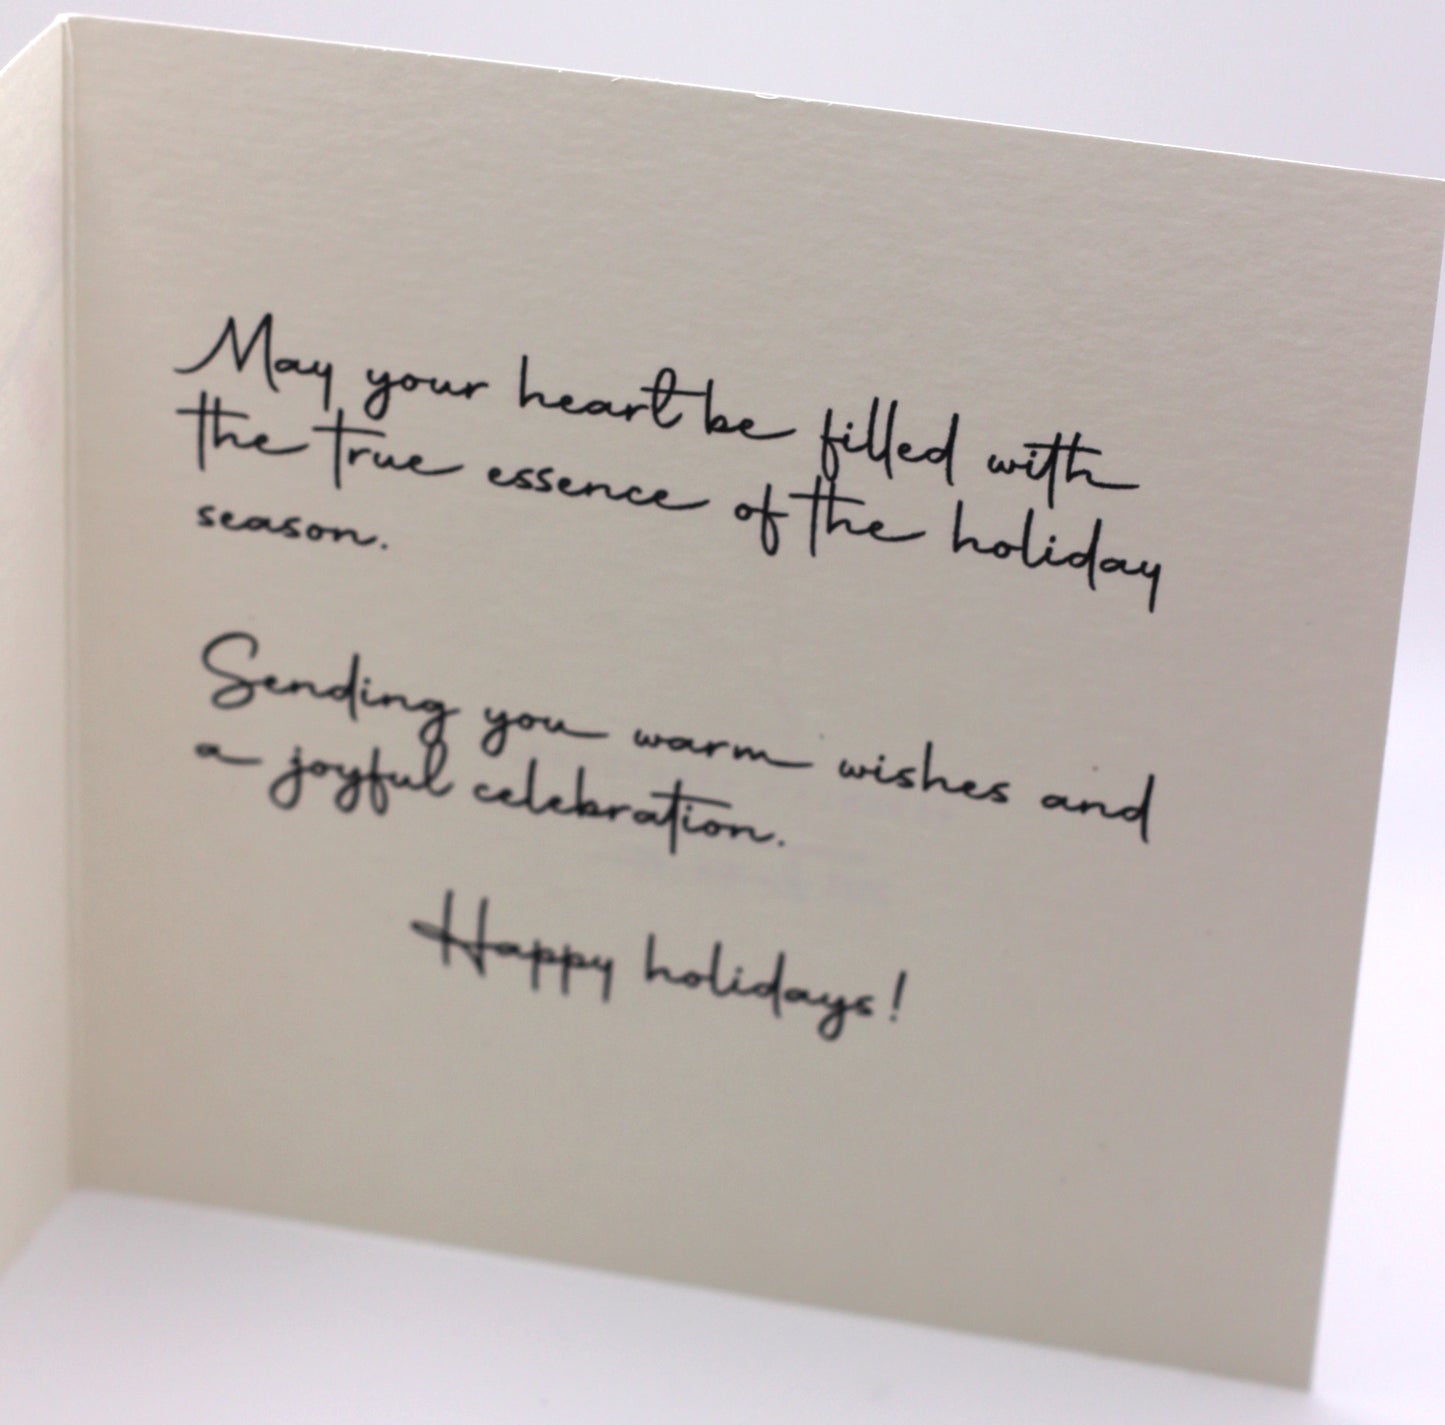 May your heart be filled with
the true essence of the holiday
season.
Sending you warm wishes and
a joyful celebration.
Happy holidays!